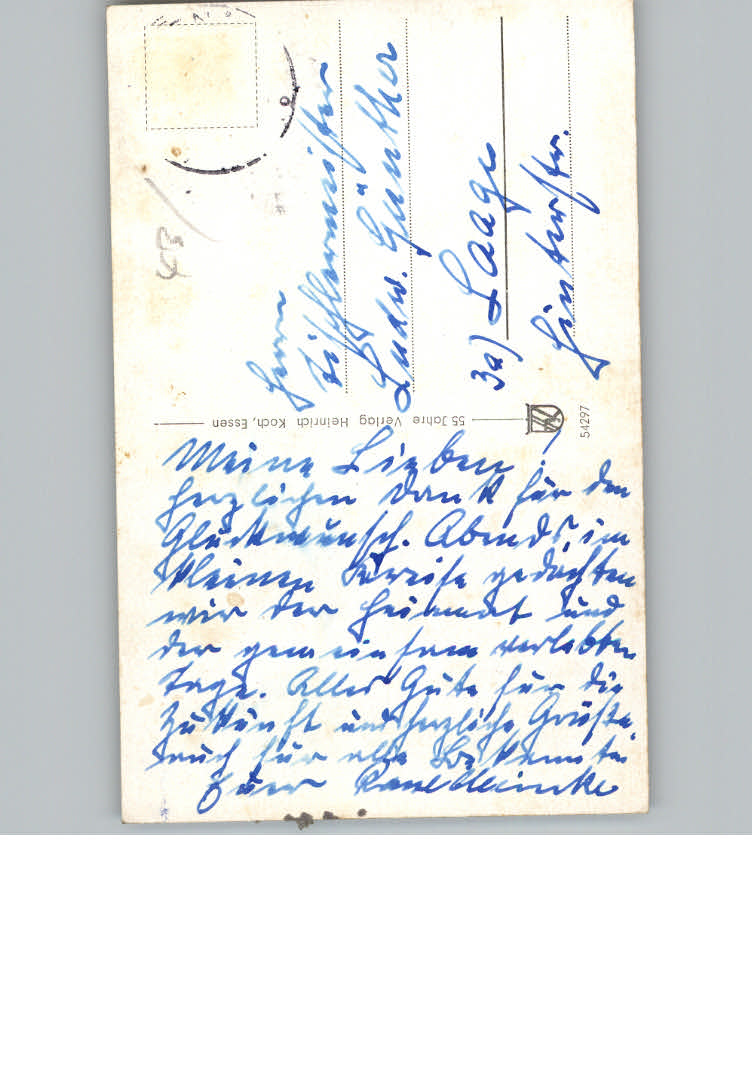 Meine Lieben!
herzlichen Dank für den
Glückwunsch. Abends, im
kleinen Kreise gedachten
wir der Heimat und
der gemeinsam verlebten
Tage. Alles Gute für die
Zukunft und herzliche Grüße
auch für alle Bekannte
Euer
Herrn
Tischlermeister
Ludw. Günther
3a) Laage
Hinterstr.
55 Jahre Verlag Heinrich Koch, Essen
54297